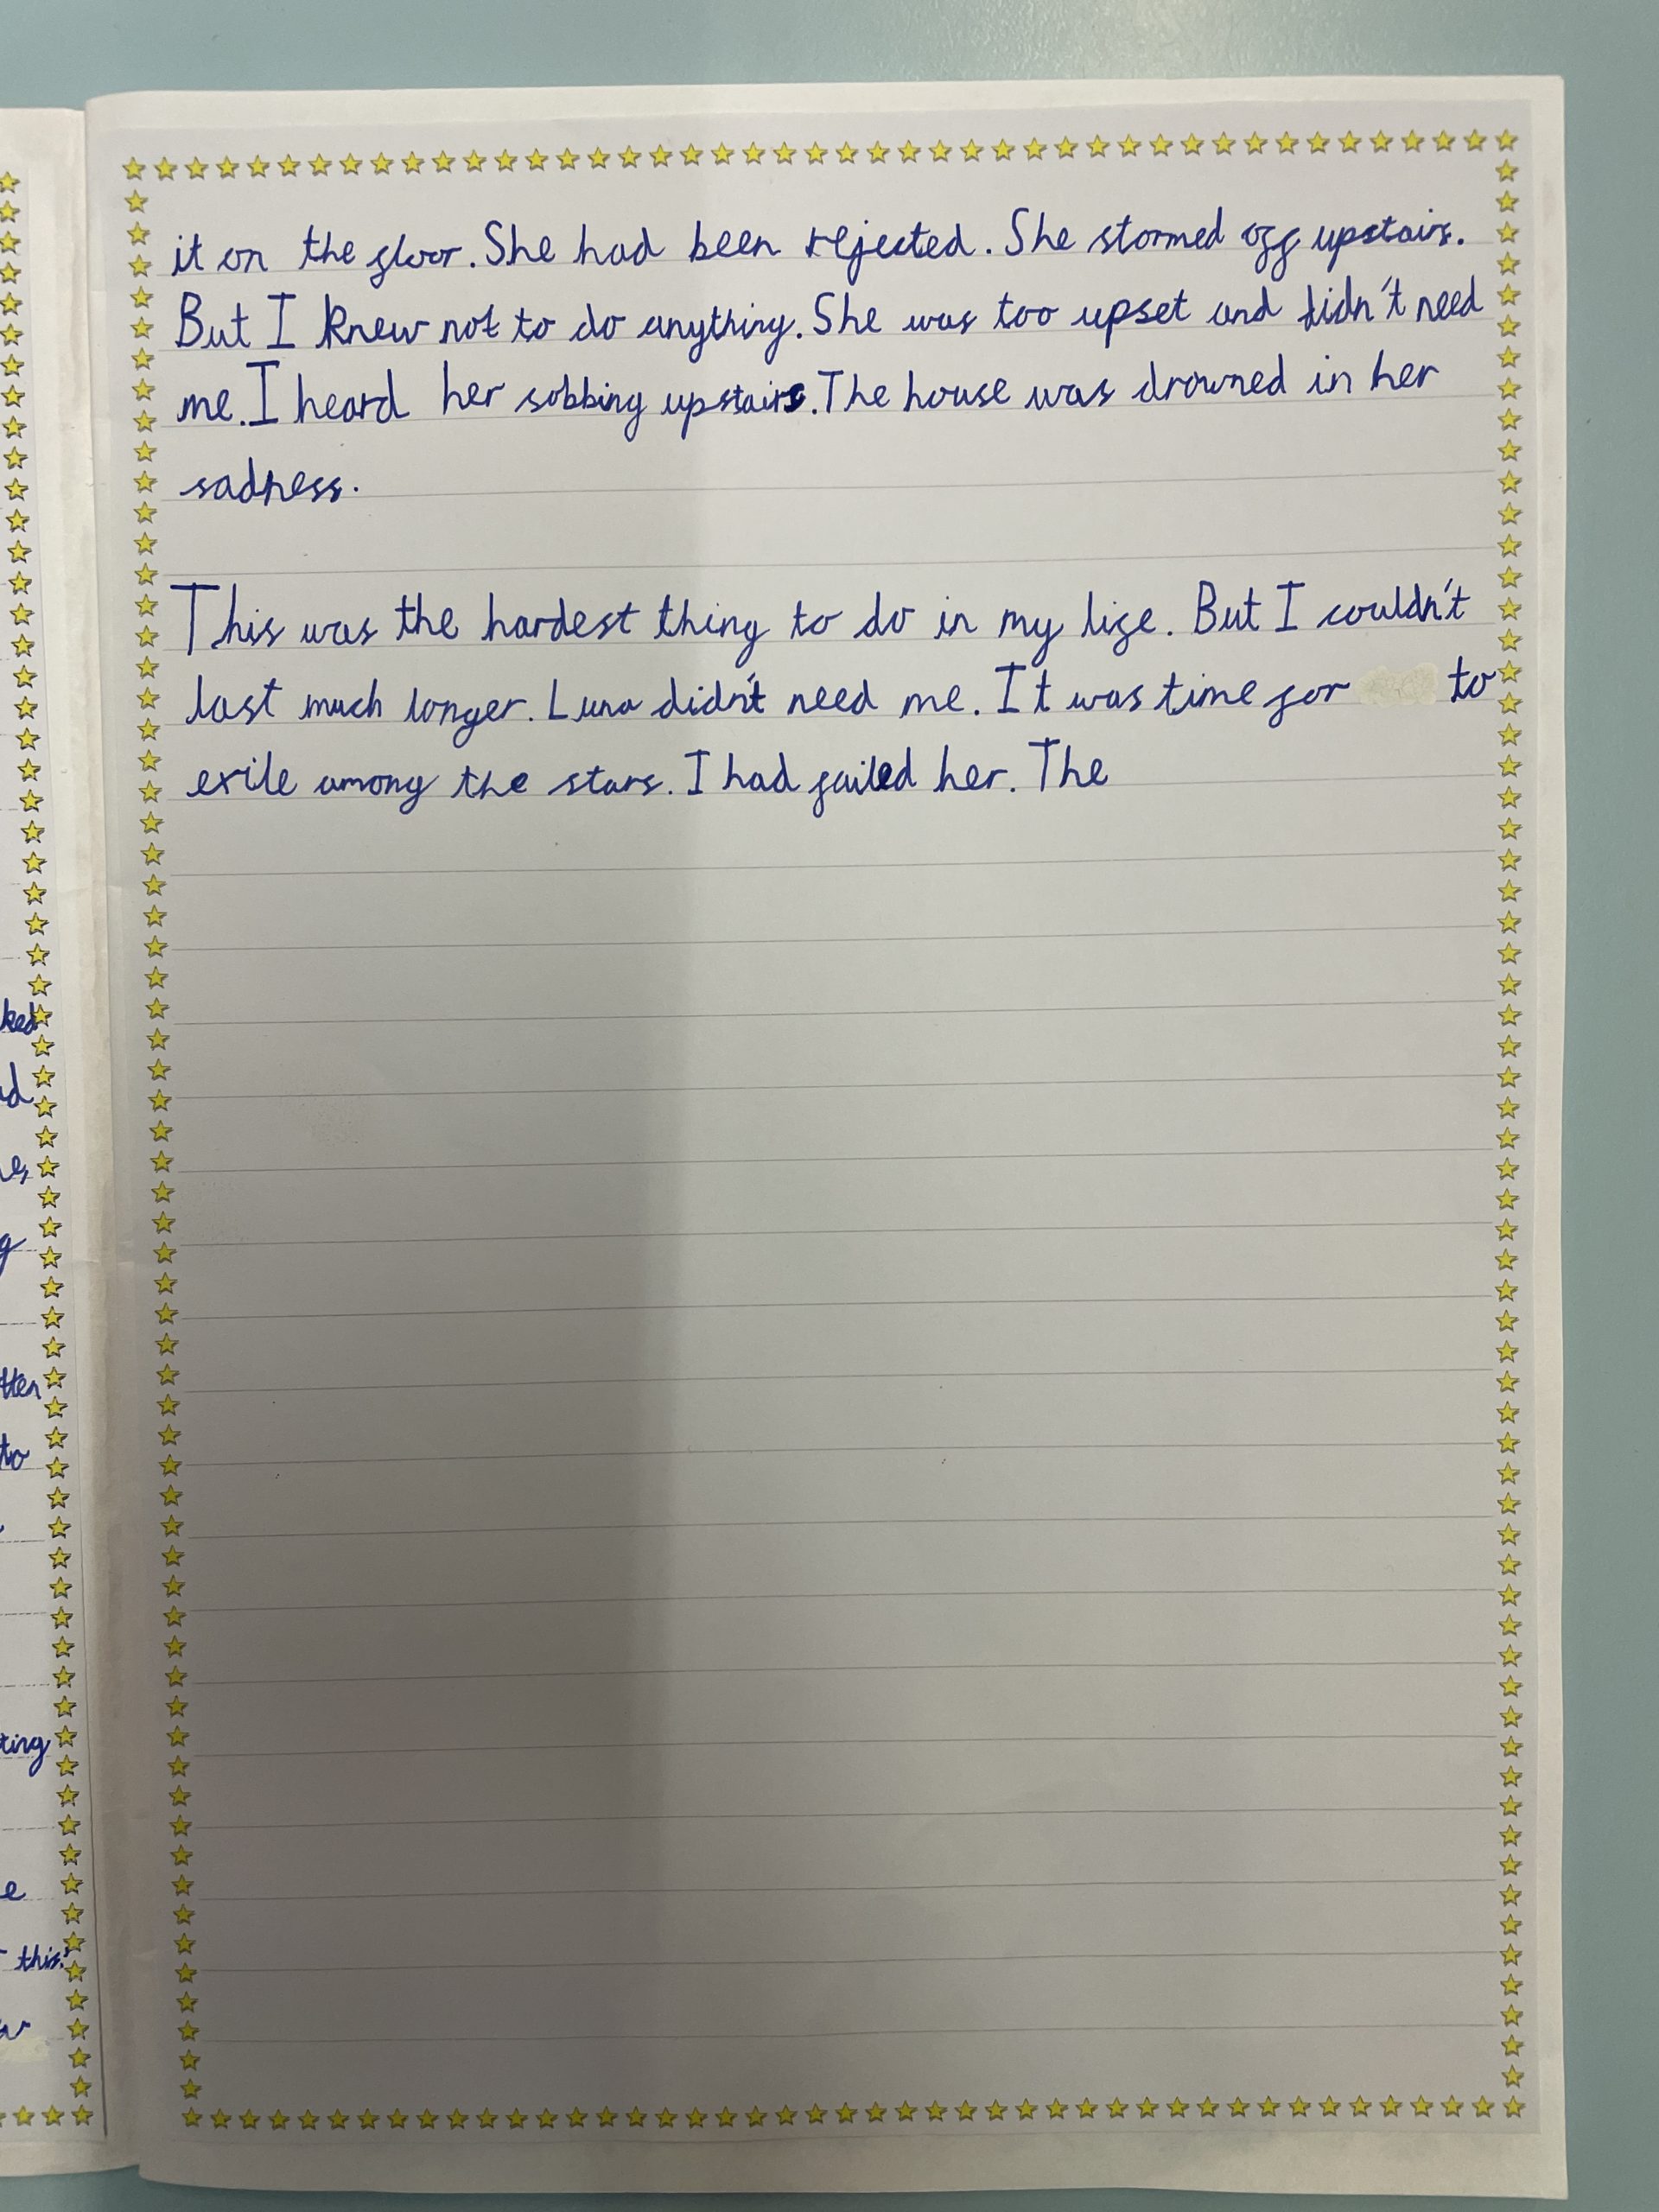 it on the floor. She had been rejected. She stormed off upstairs.
But I knew not to do anything. She was too upset and didn't need
me. I heard her sobbing upstairs. The house was drowned in her
sadness.
This was the hardest thing to do in my life. But I couldn't
last much longer. Luna didn't need me. It was time for to
exile among the stars. I had failed her. The